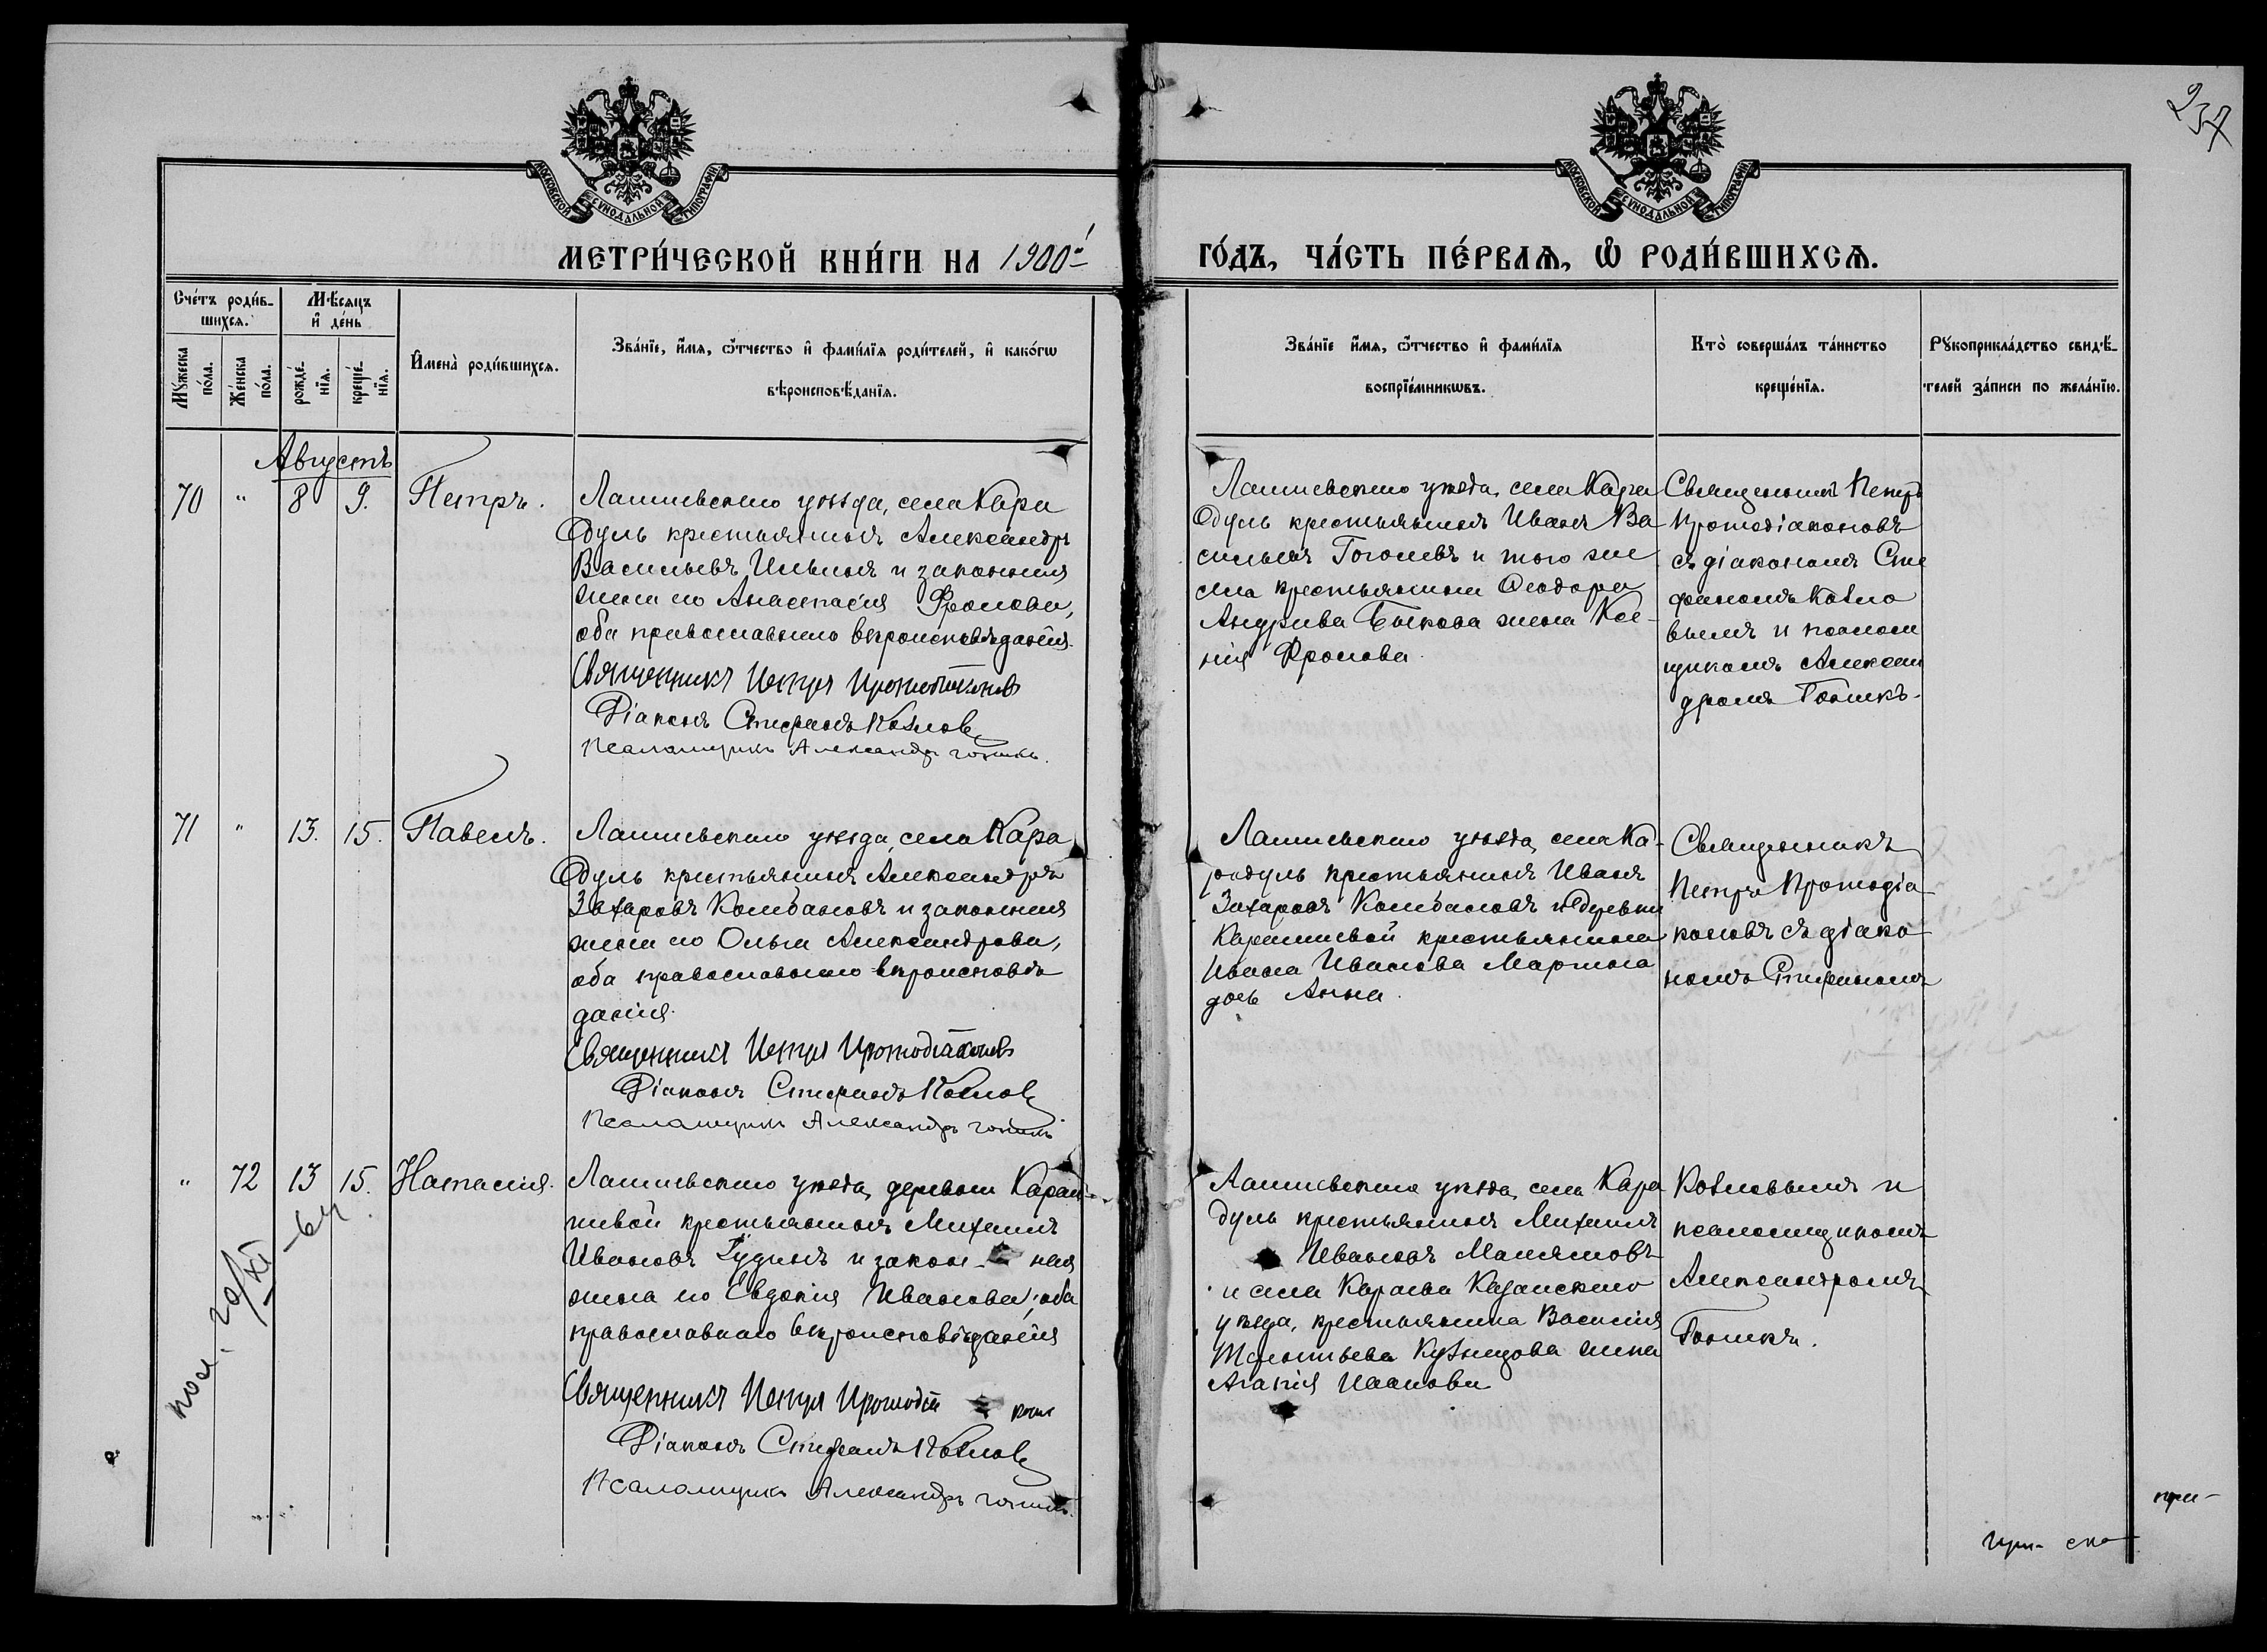 237
МОСКОВСКОЙ СУНОДАЛЬНОЙ ТИПОГРАФІИ
МОСКОВСКОЙ СУНОДАЛЬНОЙ ТИПОГРАФІИ
МЕТРИ́ЧЕСКОЙ КНИ́ГИ НА 1900й
ГО́ДЪ, ЧА́СТЬ ПЕ́РВАѦ, Ѽ РОДИ́ВШИХСѦ.
Сче́тъ роди́в-
шихсѧ.
Мѣ́сяцъ
и҆ де́нь
Мꙋ́жеска по́ла.
Же́нска по́ла.
рожде́-нїѧ.
креще́-нїѧ.
И҆мена̀ роди́вшихсѧ.
Зва́нїе, и҆́мѧ, ѻ҆́тчество и҆ фами́лїѧ роди́телей, и҆ како́гѡ
вѣроисповѣ́данїѧ.
Зва́нїе и҆́мѧ, ѻ҆́тчество и҆ фами́лїѧ
воспрїе́мникѡвъ.
Кто̀ соверша́лъ та́инство
креще́нїѧ.
Рꙋкоприкла́дство свидѣ́-
телей за́писи по жела́нїю.
Августъ
70 " 8 9. Петръ.
Лаишевскаго уѣзда, села Кара
дуль крестьянинъ Александръ
Васильевъ Ильинъ и законная
жена его Анастасія Фролова,
оба православнаго вѣроисповѣданія.
Священникъ Петръ Протодіаконовъ
Діаконъ Стефанъ Козловъ
Псаломщикъ Александръ
Лаишевскаго уѣзда, села Кара
дуль крестьянинъ Иванъ Ва
сильевъ Гоголевъ и того же
села крестьянина Ѳеодора
Андреева Быкова жена Ксе-
нія Фролова.
Священникъ Петръ
Протодіаконовъ
съ діакономъ Сте
фаномъ Козло
вымъ и псалом
щикомъ Алексан
дромъ
71 " 13. 15. Павелъ.
Лаишевскаго уѣзда, села Кара
дуль крестьянинъ Александръ
Захаровъ Колбановъ и законная
жена его Ольга Александрова,
оба православнаго вѣроисповѣ
данія.
Священникъ Петръ Протодіаконовъ
Діаконъ Стефанъ Козловъ
Псаломщикъ Александръ
Лаишевскаго уѣзда, села Ка-
радуль крестьянинъ Иванъ
Захаровъ Колбановъ и деревни
Караишевой крестьянина
Ивана Иванова Мартына
дочь Анна.
Священникъ
Петръ Протодіа-
коновъ съ діако-
номъ Стефаномъ
" 72 13 15. Наталія.
Лаишевскаго уѣзда, деревни Караи-
шевой крестьянинъ Михаилъ
Ивановъ Гудинъ и закон- ная
жена его Евдокія Иванова, оба
православнаго вѣроисповѣданія
Священникъ Петръ Протодіа коновъ
Діаконъ Стефанъ Козловъ
Псаломщикъ Александръ
Лаишевскаго уѣзда, села Кара
дуль крестьянинъ Михаилъ
Ивановъ
и села Караева Казанскаго
уѣзда, крестьянина Василія
Терентьева Кузнецова жена
Агапія Иванова
Козловымъ и
псаломщикомъ
Александромъ
20/XI -64
при-